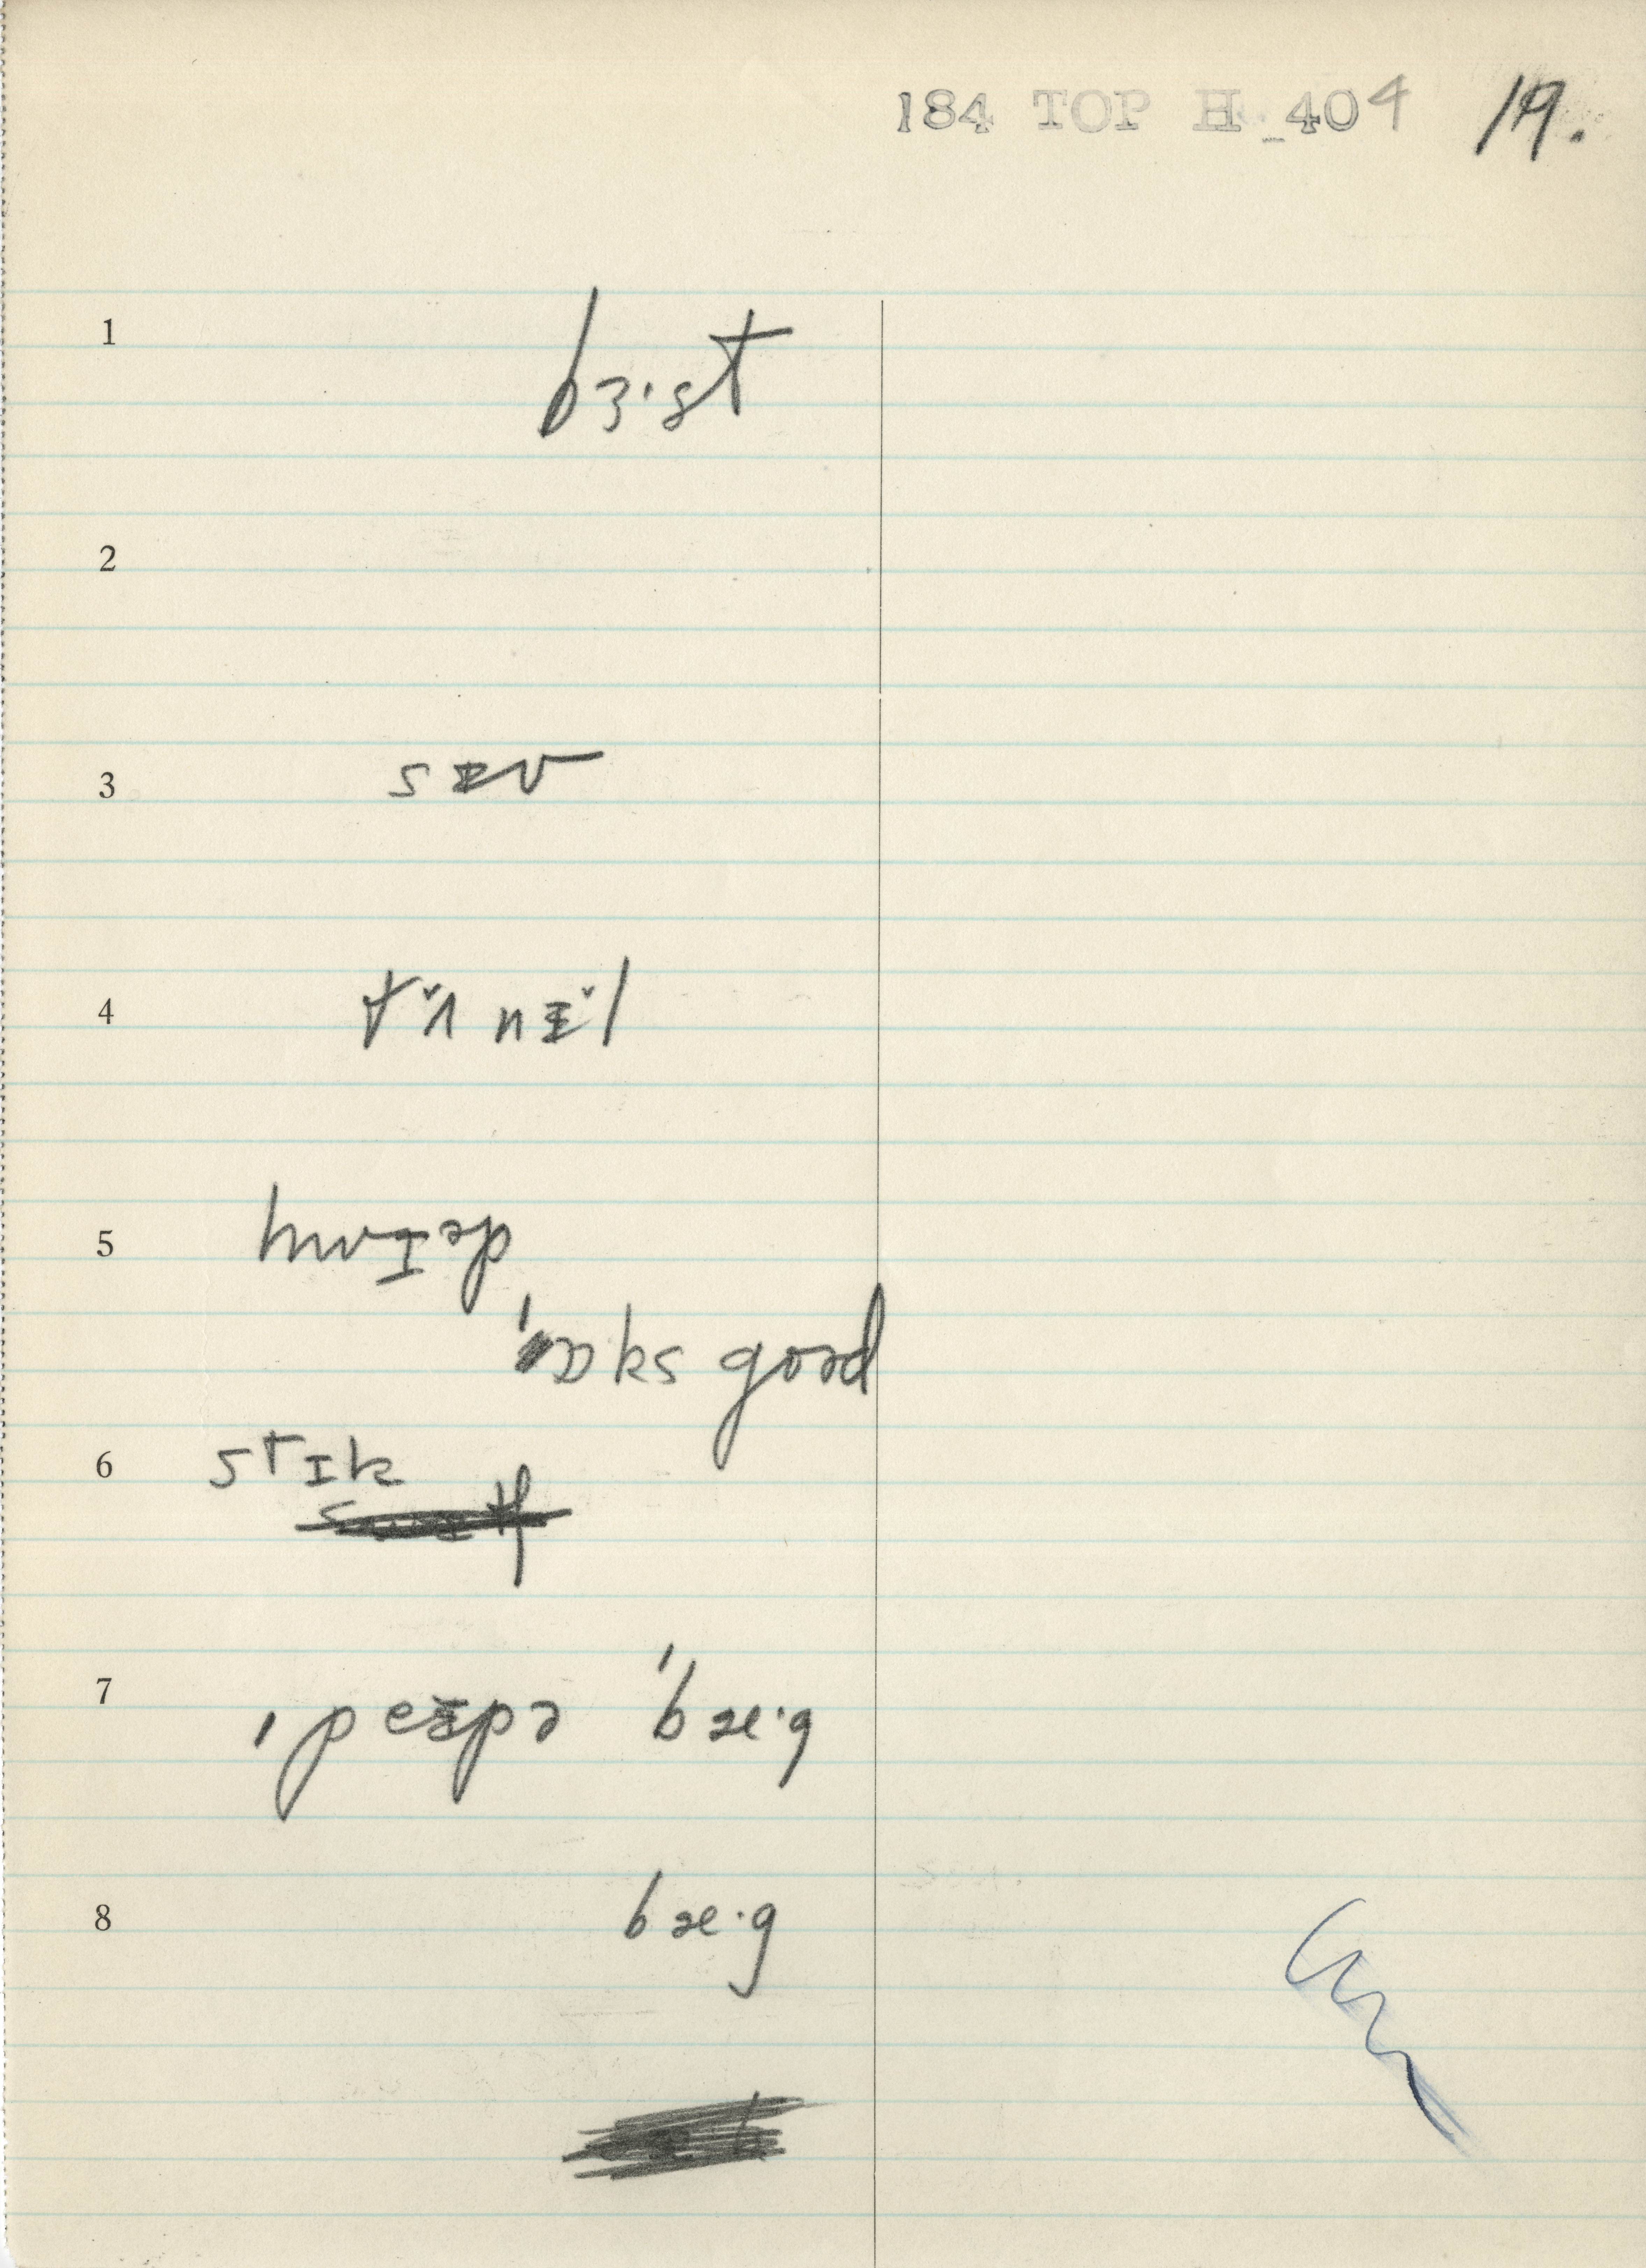 184 TOP H_404 19.
1 bɜ·st
2
3 sɪv
4 tʌ̌nɪ̌l
5 hwɪəp
ks goəd
6 stɪk
7 ˌpeɪpə ˈbæ·g
8 bæ·g